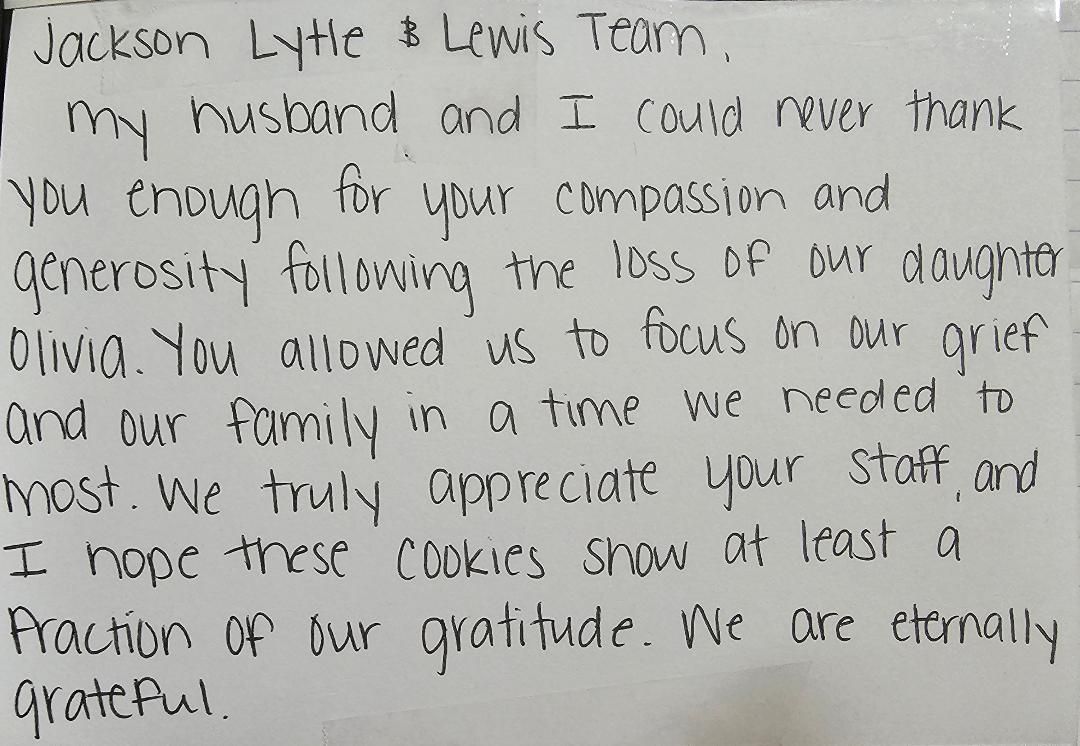 Jackson Lytle & Lewis Team,
My husband and I could never thank
you enough for your compassion and
generosity following the loss of our daughter
Olivia. You allowed us to focus on our grief
and our family in a time we needed to
most. We truly appreciate your staff, and
I hope these cookies show at least a
fraction of our gratitude. We are eternally
grateful.